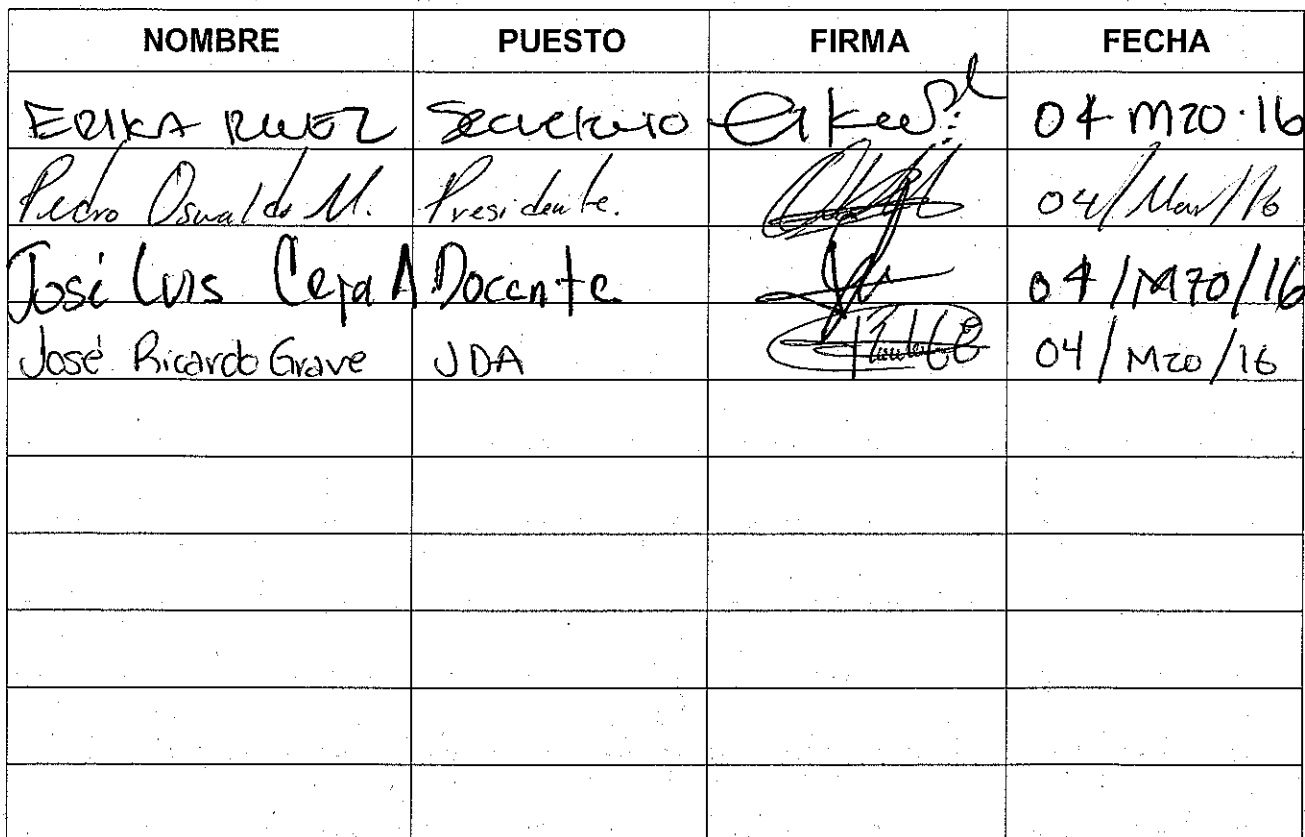 NOMBRE PUESTO FIRMA FECHA
ERIKA RUIZ Secretario 04 Mzo·16
Pedro Oswaldo M. Presidente. 04/Mar/16
José Luis Ceja A Docente 04/Mzo/16
José Ricardo Grave JDA 04/Mzo/16